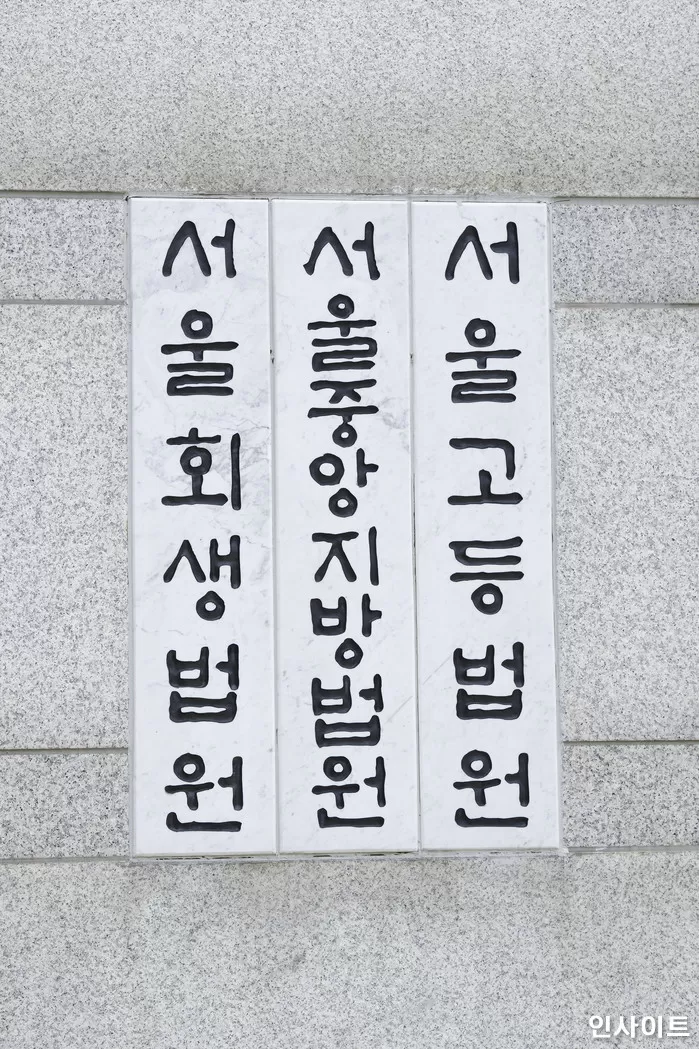 서울고등법원
서울중앙지방법원
서울회생법원
인사이트